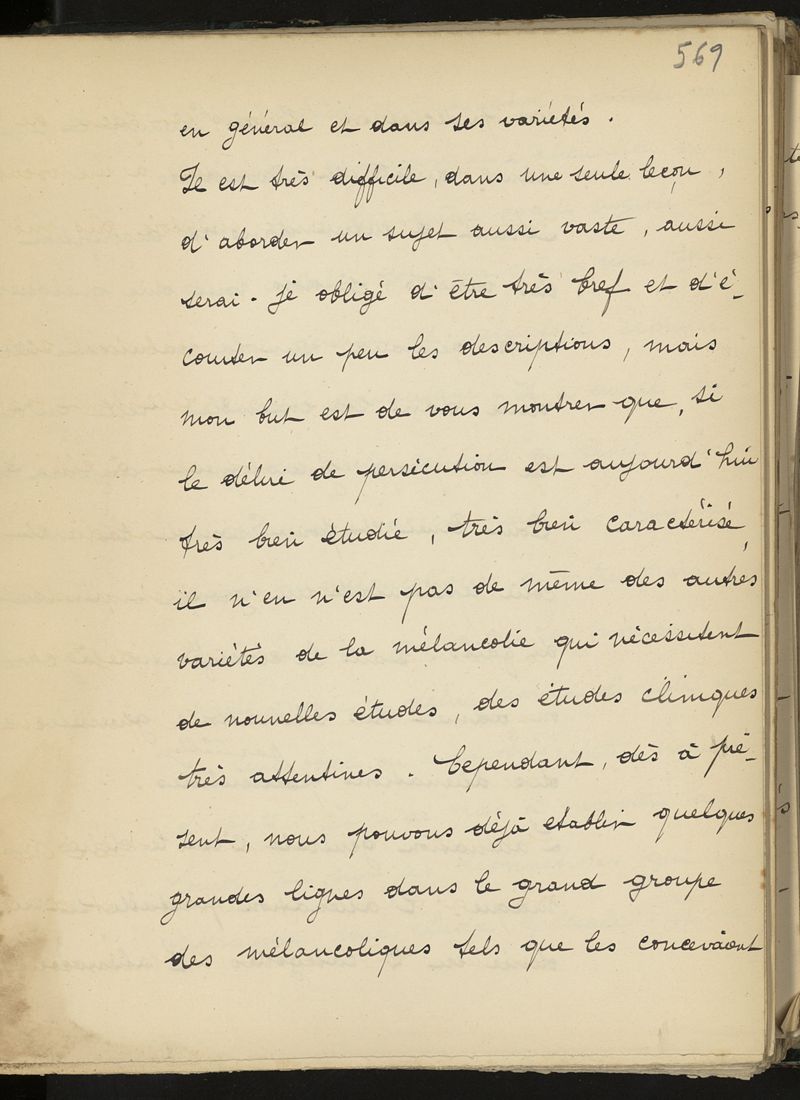 569
en général et dans ses variétés.
Il est très difficile, dans une seule leçon,
d'aborder un sujet aussi vaste, aussi
serai-je obligé d'être très bref et d'é-
courter un peu les descriptions, mais
mon but est de vous montrer que, si
le délire de persécution est aujourd'hui
très bien étudié, très bien caractérisé,
il n'en n'est pas de même des autres
variétés de la mélancolie qui nécessitent
de nouvelles études, des études cliniques
très attentives. Cependant, dès à pré-
sent, nous pouvons déjà etablir quelques
grandes lignes dans le grand groupe
des mélancoliques tels que les concevaient